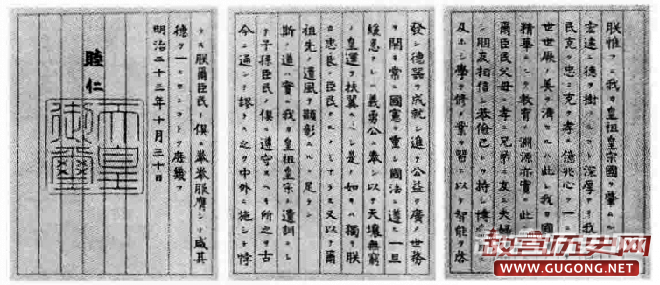 朕惟フニ我カ皇祖皇宗國ヲ肇ムル
宏遠ニ德ヲ樹ツルコト深厚ナリ我
民克ク忠ニ克ク孝ニ億兆心ヲ一ニ
世世厥ノ美ヲ濟セルハ此レ我カ國
精華ニシテ教育ノ淵源亦實ニ此
爾臣民父母ニ孝ニ兄弟ニ友ニ夫婦
朋友相信シ恭儉己レヲ持シ博
及ホシ學ヲ修メ業ヲ習ヒ以テ智能ヲ啓
發シ德器ヲ成就シ進テ公益ヲ廣メ世務
ヲ開キ常ニ國憲ヲ重シ國法ニ遵ヒ一旦
緩急アレハ義勇公ニ奉シ以テ天壤無窮
ノ皇運ヲ扶翼スヘシ是ノ如キハ獨リ朕
カ忠良ノ臣民タルノミナラス又以テ爾
祖先ノ遺風ヲ顯彰スルニ足ラン
斯ノ道ハ實ニ我カ皇祖皇宗ノ遺訓ニシ
テ子孫臣民ノ俱ニ遵守スヘキ所之ヲ古
今ニ通シテ謬ラス之ヲ中外ニ施シテ悖
ラス朕爾臣民ト俱ニ拳拳服膺シテ咸其
德ヲ一ニセンコトヲ庶幾フ
明治二十三年十月三十日
睦仁
天皇
御璽
故宫历史网
www.GUGONG.NET